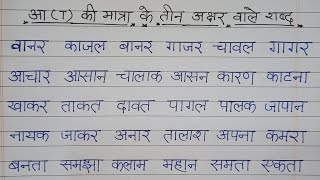 आ (ा) की मात्रा के तीन अक्षर वाले शब्द
वानर काजल बानर गाजर चावल गागर
आचार आसान चालाक आसन कारण काटना
खाकर ताकत दावत पागल पालक जापान
नायक जाकर अनार तालाश अपना कमरा
बनता समझा कलाम महान समता एकता